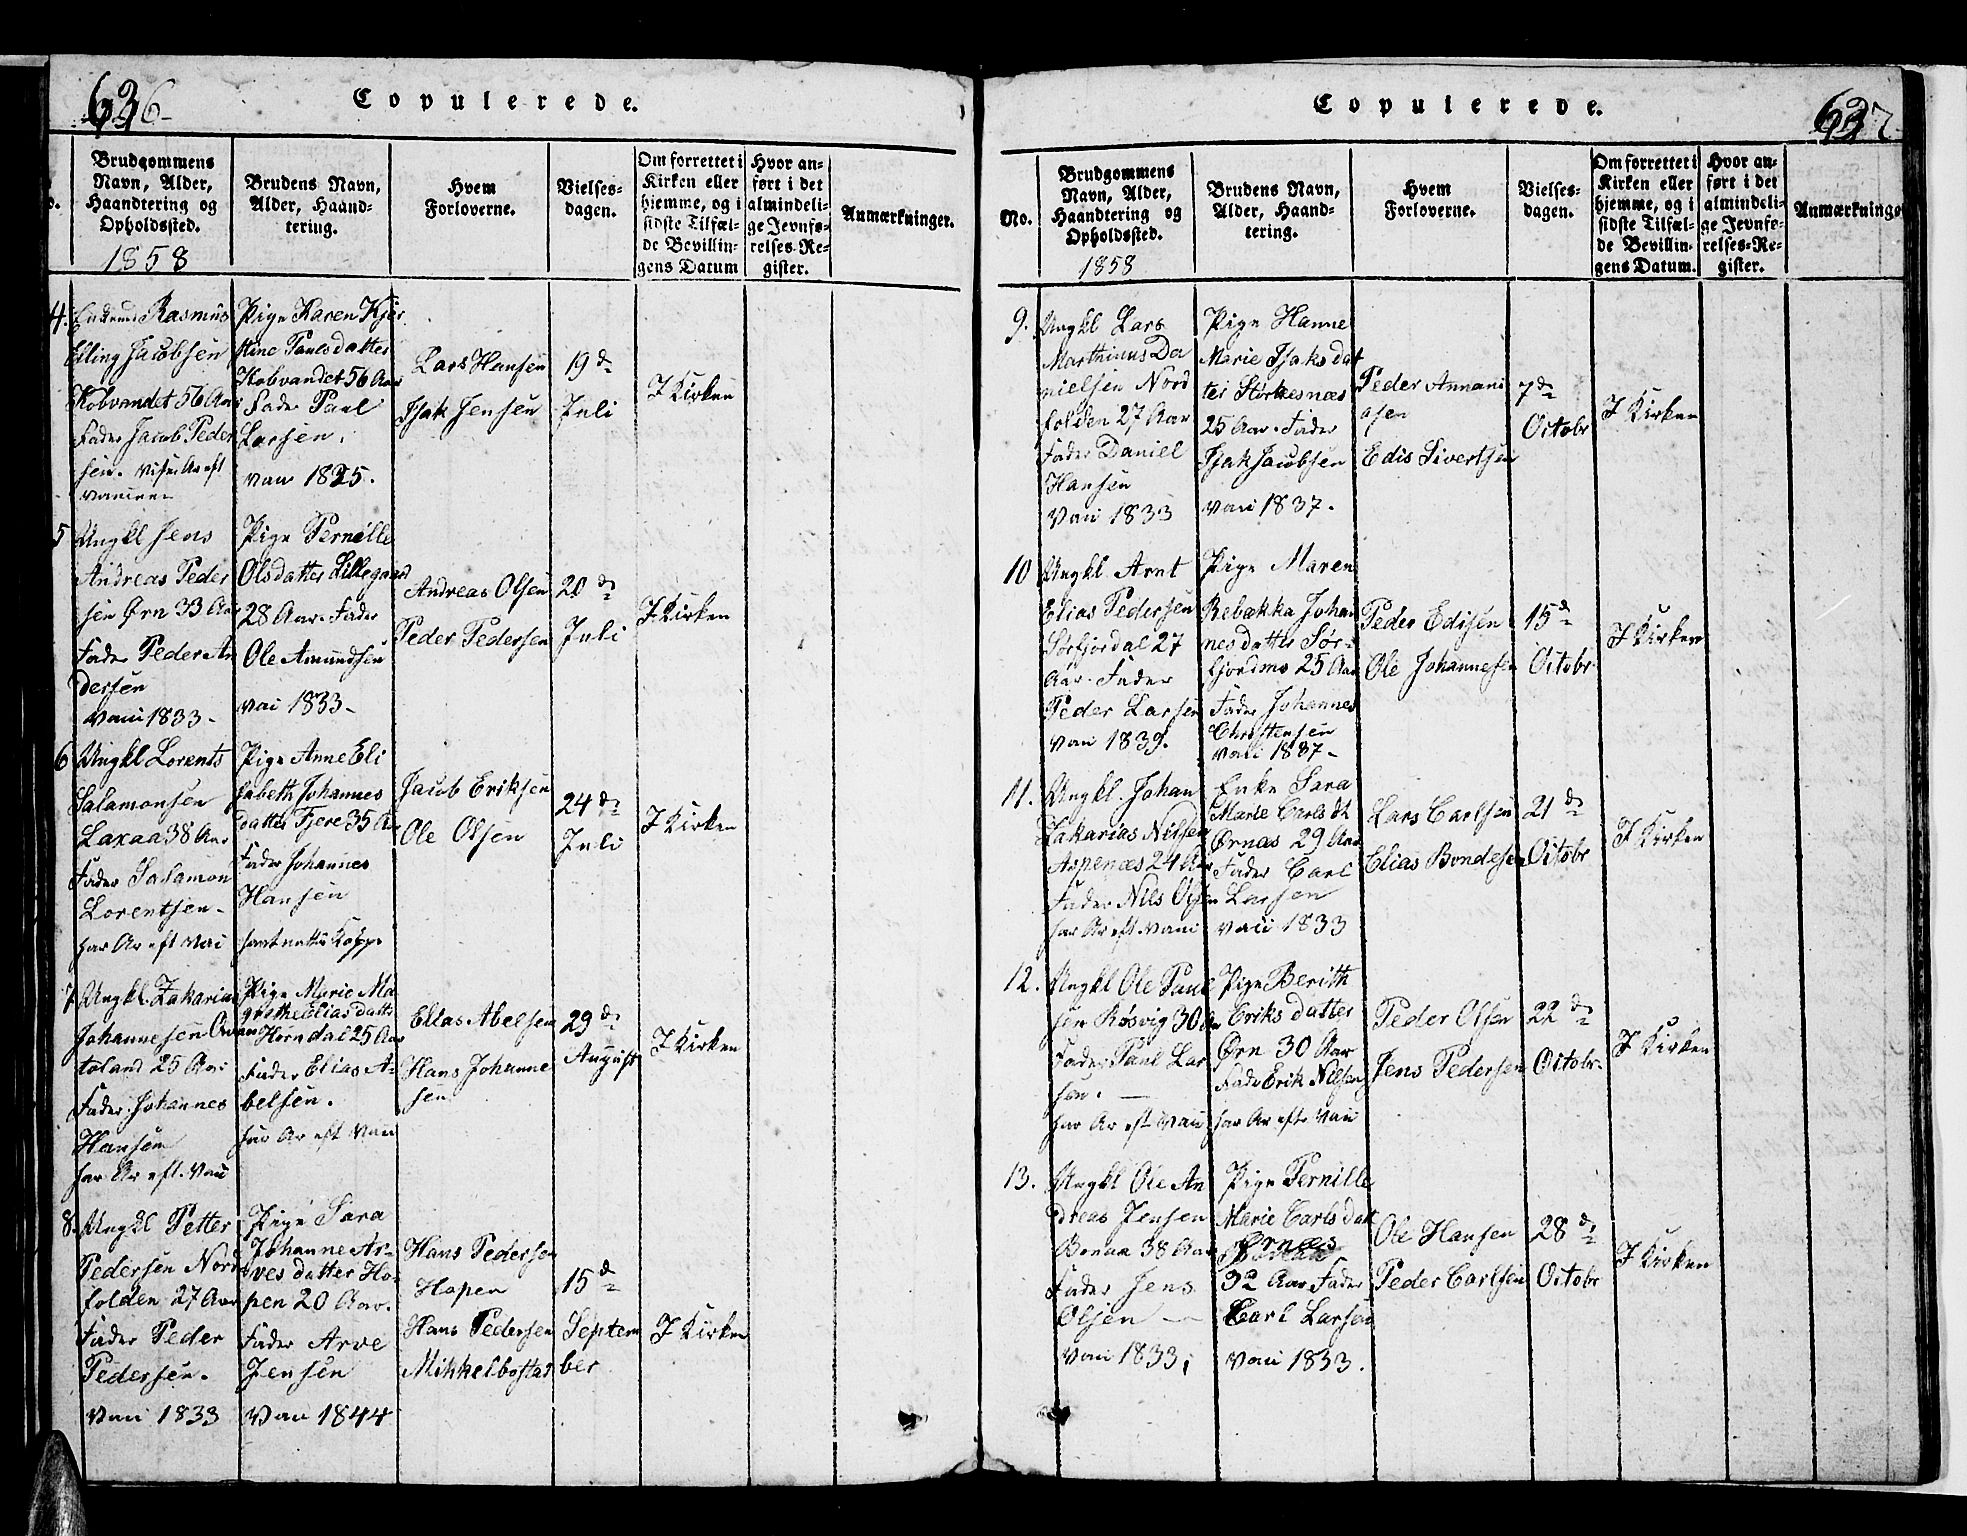 636
Copulerede.
Brudgommens
Navn, Alder,
Haandtering og
Opholdssted.
1858
Brudens Navn,
Alder, Haand=
tering.
Hvem
Forloverne.
Vielses=
dagen.
Om forrettet i
Kirken eller
hjemme, og i
sidste Tilfæl=
de Bevillin=
gens Datum
Hvor an=
ført i det
almindeli=
ge Jevnfø=
relses-Re=
gister.
Anmærkninger.
4.
Rasmus
Elling Jacobsen
Kobvandet 56 Aar
Fader Jacob Peder
sen.
Pige Karen Kjer
stine Paulsdatter
Kobvandet 56 Aar
Fader Paul
Larsen.
vac 1825.
Lars Hansen
Isak Jensen
19de
Juli
I Kirken
5
Ungkl Jens
Andreas Peder
sen Ørn 33 Aar
Fader Peder An
dersen
vacc 1833-
Pige Pernille
Olsdatter Lillegaard
28 Aar. Fader
Ole Amundsen
vac 1833-
Andreas Olsen
Peder Pedersen
20de
Juli
I Kirken
6
Ungkl Lorents
Salamonsen
Laxaa 38 Aar
Fader Salamon
Lorentsen-
har Ar eft vac
Pige Anne Eli
sabeth Johannes
datter Fjere 35 Aar
Fader Johannes
Hansen
hart natt Kopp
Jacob Eriksen
Ole Olsen
24de
Juli
I Kirken
7
Ungkl. Zakarias
Johannesen Qvan
toland 25 Aar
Fader Johannes
Hansen
har Ar eft. vac
Pige Marie Ma
grethe Elias datt
Hørndal 25 Aar
Fader Elias A-
belsen.
har Ar eft vac
Elias Abelsen
Hans Johanne
sen
29de
August
I Kirken
8.
Ungkl Petter
Pedersen Nord
folden 27 Aar
Fader Peder
Pedersen.
Vacc 1833
Pige Sara
Johanne Ar-
vesdatter Ho-
pen 20 Aar.
Fader Arve
Jensen
Vac 1844
Hans Pedersen
Hopen
Hans Pedersen
Mikkelbostad
15de
Septem
ber
I Kirken
637
Copulerede.
No.
Brudgommens
Navn, Alder,
Haandtering og
Opholdssted.
1858
Brudens Navn,
Alder, Haand=
tering.
Hvem
Forloverne.
Vielses=
dagen.
Om forrettet i
Kirken eller
hjemme, og i
sidste Tilfæl=
de Bevillin=
gens Datum.
Hvor an=
ført i det
almindeli=
ge Jevnfø=
relses-Re=
gister.
Anmærkninge
9.
Ungkl Lars
Marthinus Da
nielsen Nord
folden 27 Aar
Fader Daniel
Hansen
Vacc 1833
Pige Hanne
Marie Isaksdat
ter Størkesnæs
25 Aar. Fader
Isak Jacobsen
vacc 1837.
Peder Annani
asen
Edis Sivertsen
7de
Octobr
I Kirken
10
Ungkl. Arnt
Elias Pedersen
Sørfjordal 27
Aar. Fader
Peder Larsen
vacc 1839.
Pige Maren
Rebækka Johan
nesdatter Sør-
fjordmo 25 Aar
Fader Johannes
Christensen
vacc 1837-
Peder Edisen
Ole Johannesen
15de
Octobr
I Kirken
11.
Ungkl. Johan
Zakarias Nilsen
Aspenæs 24 Aar
Fader Nils Olsen
har Ar eft. vacc
Enke Sara
Marie Carlsdt
Ørnæs 29 Aar
Fader Carl
Larsen
vacc 1833
Lars Carlsen
Elias Bondesen
21de
Octobr
I Kirken
12.
Ungkl Ole Paul
sen Røsvig 30 Aar
Fader Paul Lar
sen.
har Ar eft vacc
Pige Berith
Eriksdatter
Ørn 30 Aar
Fader Erik Nilsen
har Ar eft. vacc
Peder Olsen
Jens Pedersen
22de
Octobr.
I Kirken
13.
Ungkl Ole An
dreas Jensen
Bonaa 38 Aar
Fader Jens
Olsen
Vacc 1833;
Pige Pernille
Marie Carlsdatt
Ørnes
32 Aar Fader
Carl Larsen
Vacc 1833.
Ole Hansen
Peder Carlsen
28de
Octobr
I Kirken